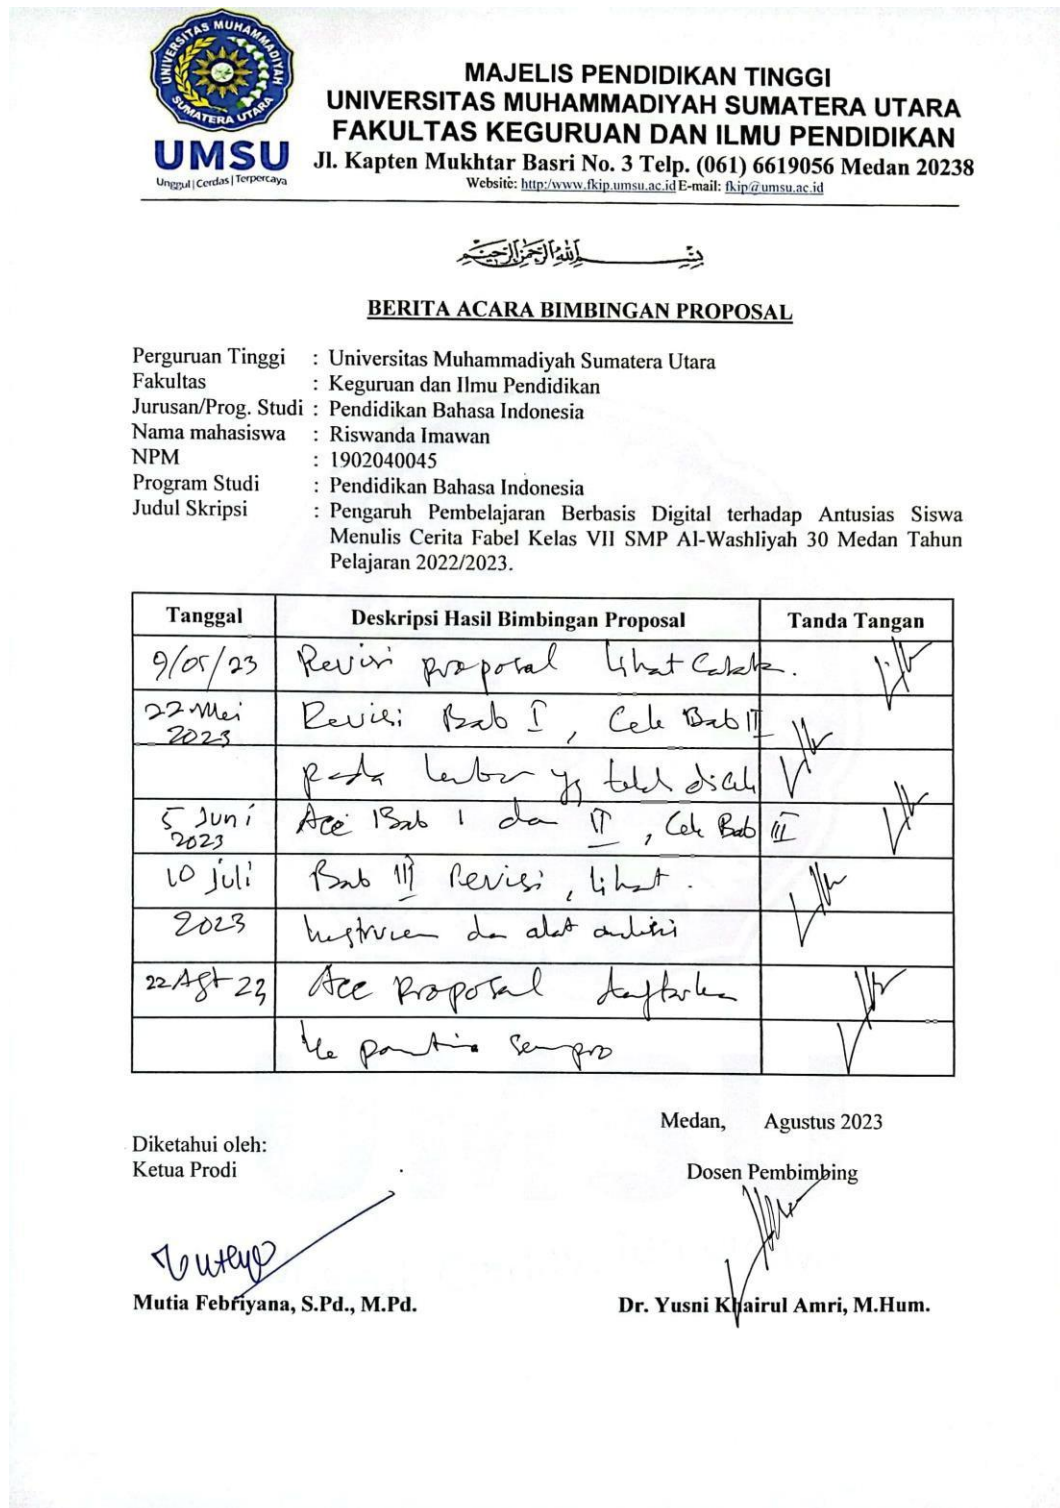 UNIVERSITAS MUHAMMADIYAH
SUMATERA UTARA
UMSU
Unggul | Cerdas | Terpercaya
MAJELIS PENDIDIKAN TINGGI
UNIVERSITAS MUHAMMADIYAH SUMATERA UTARA
FAKULTAS KEGURUAN DAN ILMU PENDIDIKAN
Jl. Kapten Mukhtar Basri No. 3 Telp. (061) 6619056 Medan 20238
Website: http:/www.fkip.umsu.ac.id E-mail: fkip@umsu.ac.id
بسم الله الرحمن الرحيم
BERITA ACARA BIMBINGAN PROPOSAL
Perguruan Tinggi : Universitas Muhammadiyah Sumatera Utara
Fakultas : Keguruan dan Ilmu Pendidikan
Jurusan/Prog. Studi : Pendidikan Bahasa Indonesia
Nama mahasiswa : Riswanda Imawan
NPM : 1902040045
Program Studi : Pendidikan Bahasa Indonesia
Judul Skripsi : Pengaruh Pembelajaran Berbasis Digital terhadap Antusias Siswa
Menulis Cerita Fabel Kelas VII SMP Al-Washliyah 30 Medan Tahun
Pelajaran 2022/2023.
Tanggal Deskripsi Hasil Bimbingan Proposal Tanda Tangan
9/05/23 Revisi proposal lihat
22 Mei Revisi Bab I, Cek Bab II
2023
pada yg telah
5 Juni Acc Bab I dan II, Cek Bab III
2023
10 Juli Bab III Revisi, lihat.
2023 Instrumen dan alat analisis
22 Agt 23 Acc Proposal daftarkan
ke panitia sempro
Medan, Agustus 2023
Diketahui oleh:
Ketua Prodi
Dosen Pembimbing
Mutia Febriyana, S.Pd., M.Pd.
Dr. Yusni Khairul Amri, M.Hum.